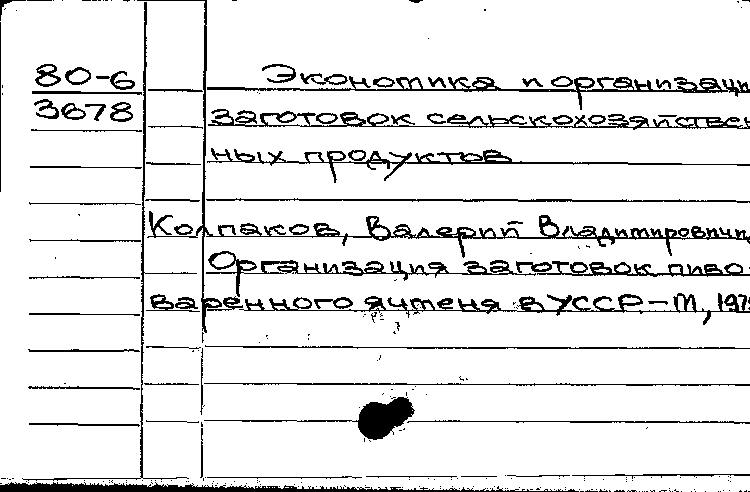 80-6 Экономика и организаци
3678 заготовок сельскохозяйствен
ных продуктов
Колпаков, Валерий Владимирович
Организация заготовок пиво
варенного ячменя в УССР. - М., 197